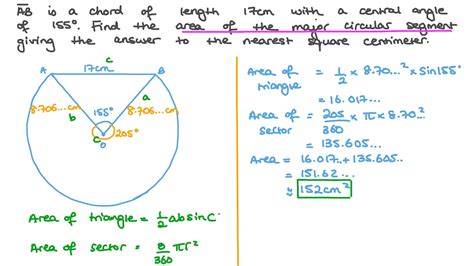 AB is a chord of length 17cm with a central angle
of 155°. Find the area of the major circular segment
giving the answer to the nearest square centimeter.
c
A 17cm B
8.706...cm b 155° a 8.706...cm
C 205°
O
Area of triangle = 1/2 absinC
Area of sector = θ/360 πr²
Area of triangle = 1/2 × 8.70...² × sin155°
= 16.017...
Area of sector = 205/360 × π × 8.70..²
= 135.605...
Area = 16.017.. + 135.605...
= 151.62...
≈ 152cm²